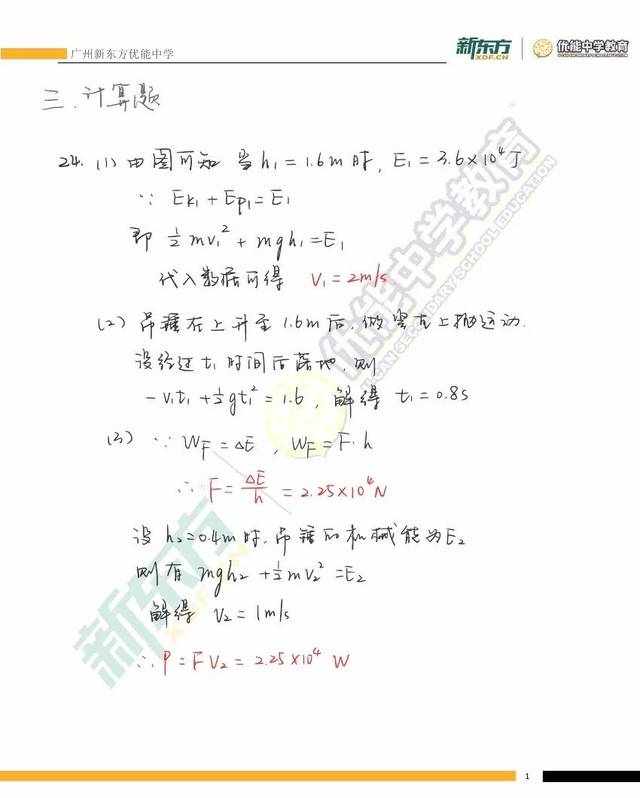 广州新东方优能中学
新东方 XDF.CN 优能中学教育
三. 计算题
24. (1) 由图可知 当h₁=1.6m时, E₁=3.6×10⁴J
∵ Ek₁+Ep₁=E₁
即 ½mv₁²+mgh₁=E₁
代入数据可得 v₁=2m/s
(2) 吊锤在上升至1.6m后, 做竖直上抛运动.
设经过t₁时间后落地, 则
-v₁t₁+½gt₁²=1.6, 解得 t₁=0.8s
(3) ∵ W_F=ΔE, W_F=F·h
∴ F=ΔE/h=2.25×10⁴N
设h₂=0.4m时, 吊锤的机械能为E₂
则有 mgh₂+½mv₂²=E₂
解得 v₂=1m/s
∴P=Fv₂=2.25×10⁴ W
新东方
优能中学教育
UCAN SECONDARY SCHOOL EDUCATION
1